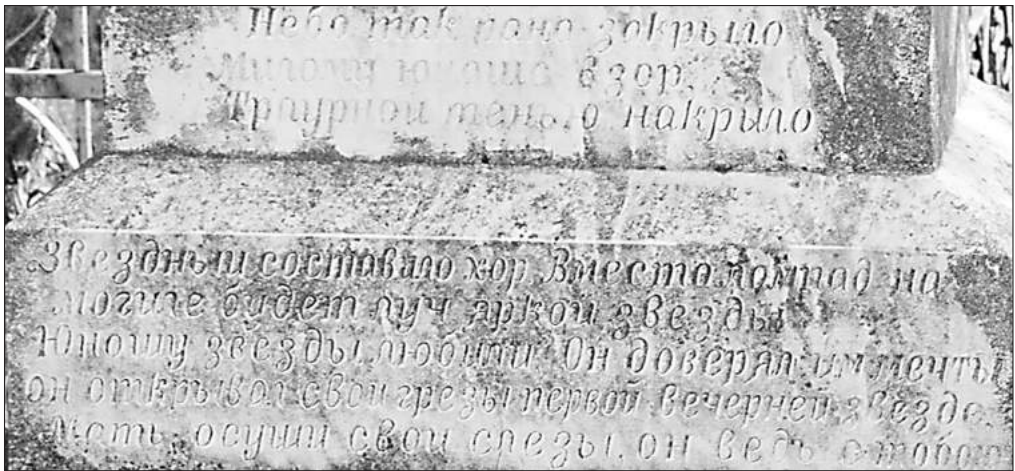 Небо так рано закрыло
Милому юноше взор,
Траурной тенью накрыло
Звездный составило хор. Вместо лампад на
могиле будет луч яркой звезды
Юношу звезды любили. Он доверял им мечты
он открывал свои грезы первой вечерней звезде.
Мать, осуши свои слезы, он ведь с тобою